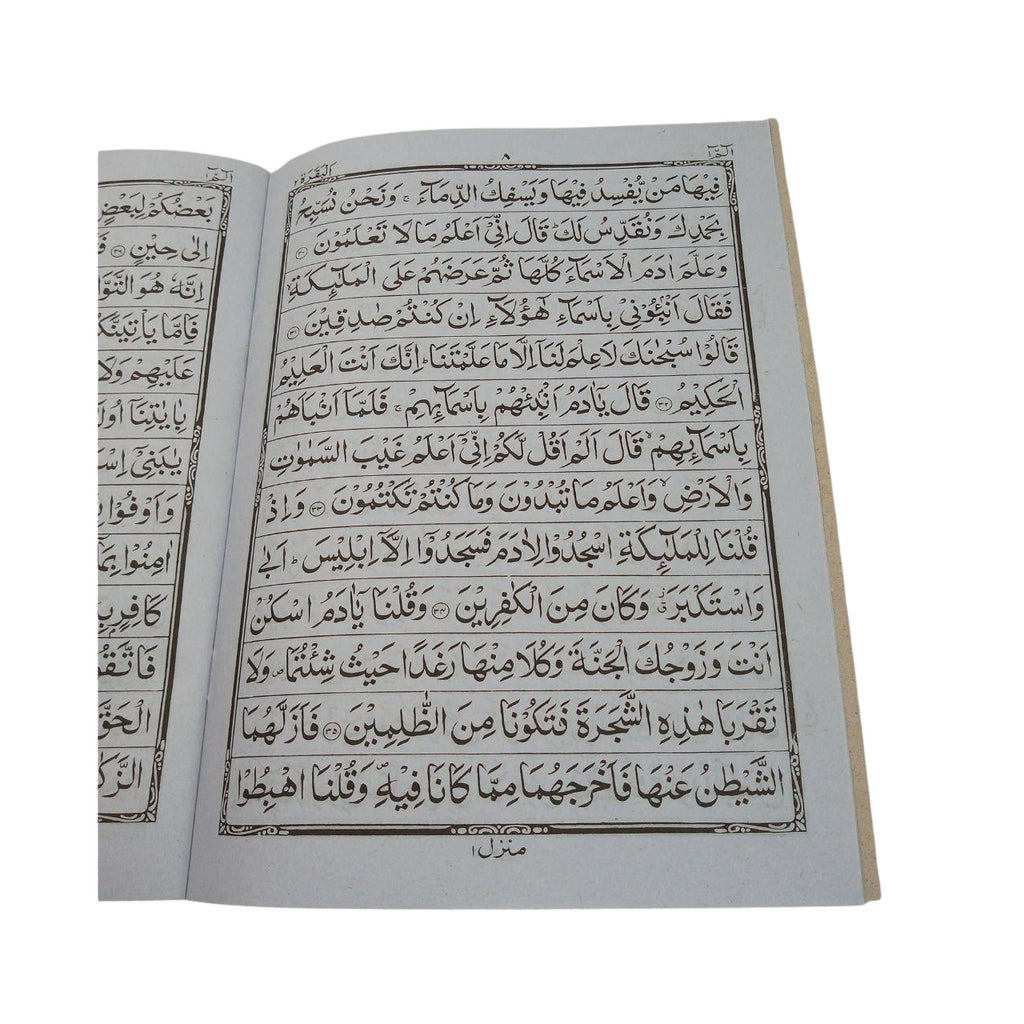 الٓمّٓ ١
٨
اَلْبَقَرَة ٢
فِيْهَا مَنْ يُّفْسِدُ فِيْهَا وَيَسْفِكُ الدِّمَآءَ ۚ وَنَحْنُ نُسَبِّحُ
بِحَمْدِكَ وَنُقَدِّسُ لَكَ ؕ قَالَ اِنِّىْٓ اَعْلَمُ مَا لَا تَعْلَمُوْنَ ۝۳۰
وَعَلَّمَ اٰدَمَ الْاَسْمَآءَ كُلَّهَا ثُمَّ عَرَضَهُمْ عَلَى الْمَلٰٓئِكَةِ ۙ
فَقَالَ اَنْۢبِـُٔوْنِىْ بِاَسْمَآءِ هٰٓؤُلَآءِ اِنْ كُنْتُمْ صٰدِقِيْنَ ۝۳۱
قَالُوْا سُبْحٰنَكَ لَا عِلْمَ لَنَآ اِلَّا مَا عَلَّمْتَنَا ؕ اِنَّكَ اَنْتَ الْعَلِيْمُ
الْحَكِيْمُ ۝۳۲ قَالَ يٰٓاٰدَمُ اَنْۢبِئْهُمْ بِاَسْمَآئِهِمْ ۚ فَلَمَّآ اَنْۢبَاَهُمْ
بِاَسْمَآئِهِمْ ۙ قَالَ اَلَمْ اَقُلْ لَّكُمْ اِنِّىْٓ اَعْلَمُ غَيْبَ السَّمٰوٰتِ
وَالْاَرْضِ ۙ وَاَعْلَمُ مَا تُبْدُوْنَ وَمَا كُنْتُمْ تَكْتُمُوْنَ ۝۳۳ وَاِذْ
قُلْنَا لِلْمَلٰٓئِكَةِ اسْجُدُوْا لِاٰدَمَ فَسَجَدُوْٓا اِلَّآ اِبْلِيْسَ ؕ اَبٰى
وَاسْتَكْبَرَ ۗ وَكَانَ مِنَ الْكٰفِرِيْنَ ۝۳۴ وَقُلْنَا يٰٓاٰدَمُ اسْكُنْ
اَنْتَ وَزَوْجُكَ الْجَنَّةَ وَكُلَا مِنْهَا رَغَدًا حَيْثُ شِئْتُمَا ۖ وَلَا
تَقْرَبَا هٰذِهِ الشَّجَرَةَ فَتَكُوْنَا مِنَ الظّٰلِمِيْنَ ۝۳۵ فَاَزَلَّهُمَا
الشَّيْطٰنُ عَنْهَا فَاَخْرَجَهُمَا مِمَّا كَانَا فِيْهِ ۪ وَقُلْنَا اهْبِطُوْا
منزل ١
الٓمّٓ ١
بَعْضُكُمْ لِبَعْضٍ
اِلٰى حِيْنٍ ۝۳۶
اِنَّهٗ هُوَ
فَاِمَّا
عَلَيْهِمْ وَلَا
بِاٰيٰتِنَآ
يٰبَنِىْٓ
وَاَوْفُوْا
اٰمِنُوْا
كَافِرٍ
الْحَقَّ